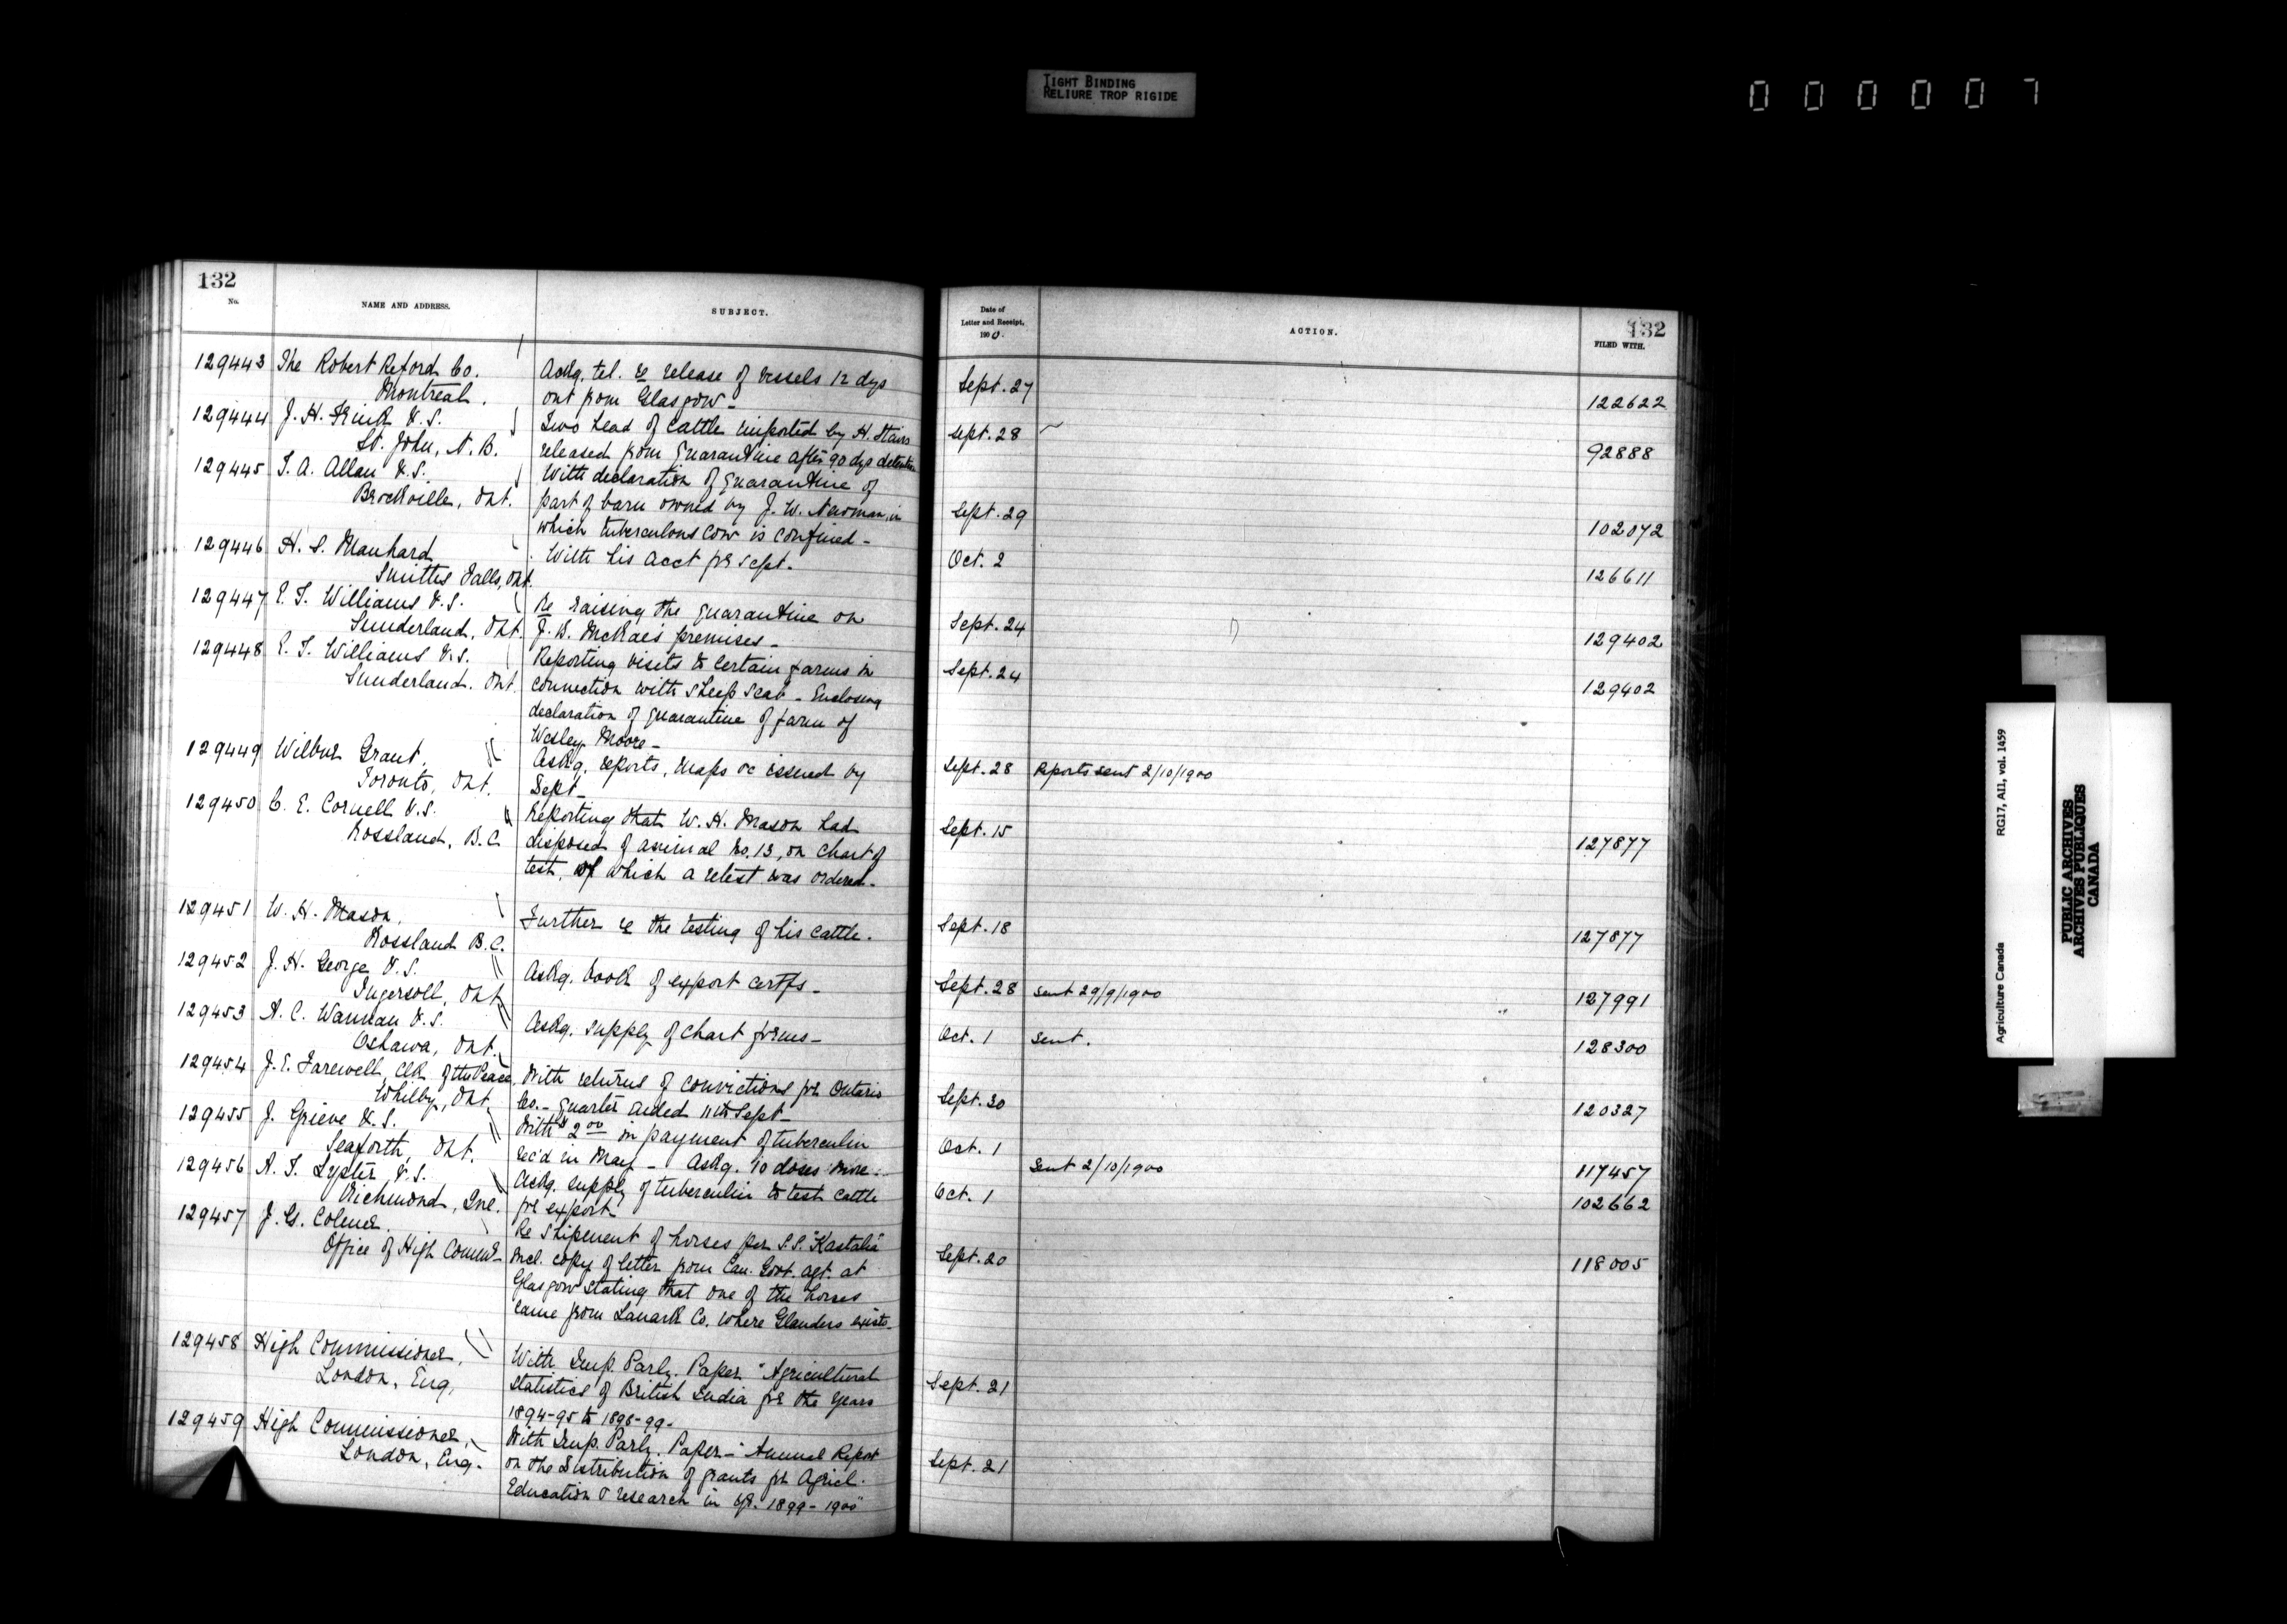 TIGHT BINDING
RELIURE TROP RIGIDE
000007
132
No.
NAME AND ADDRESS.
SUBJECT.
129443 The Robert Reford Co.
Montreal.
Ackg. tel. re release of vessels 12 dys
out from Glasgow -
129444 J. H. Frink V.S.
St. John, N.B.
Two head of cattle imported by H. Stairs
released from quarantine after 90 dys detention
129445 T. A. Allan V.S.
Brockville, Ont.
With declaration of quarantine of
part of barn owned by J. W. Newman, in
which tuberculous cow is confined -
129446 H. S. Manhard
Smiths Falls, Ont.
With his acct for Sept.
129447 E. T. Williams V.S.
Sunderland, Ont.
Re raising the quarantine on
J. B. McRae's premises -
129448 E. T. Williams V.S.
Sunderland. Ont.
Reporting visits to certain farms in
connection with sheep scab - Enclosing
declaration of quarantine of farm of
Wesley Moore -
129449 Wilbur Grant,
Toronto, Ont.
Askg. reports, maps &c issued by
Dept -
129450 C. E. Cornell V.S.
Rossland, B.C.
Reporting that W. H. Mason had
disposed of animal No. 13, on chart of
test, of which a retest was ordered -
129451 W. H. Mason,
Rossland B.C.
Further re the testing of his cattle.
129452 J. H. George V.S.
Ingersoll, Ont
Askg. book of export certfs -
129453 A. C. Wannan V.S.
Oshawa, Ont.
Askg. supply of chart forms -
129454 J. E. Farewell, Clk of the Peace,
Whitby, Ont
With returns of convictions for Ontario
Co. - quarter ended 11th Sept -
129455 J. Grieve V.S.
Seaforth, Ont.
With $2.00 in payment of tuberculin
rec'd in May - Askg. 10 doses more -
129456 A. T. Lyster V.S.
Richmond, Que.
Askg. supply of tuberculin to test cattle
for export -
129457 J. G. Colmer.
Office of High Commr -
Re shipment of horses per S.S. "Kastalia"
Incl. copy of letter from Can. Govt. agt. at
Glasgow stating that one of the horses
came from Lanark Co. where Glanders exists -
129458 High Commissioner,
London, Eng,
With Imp. Parly. Paper "Agricultural
Statistics of British India for the years
1894-95 to 1898-99 -
129459 High Commissioner,
London, Eng.
With Imp. Parly. Paper - "Annual Report
on the Distribution of grants for Agricl.
Education & research in 1899-1900"
132
Date of
Letter and Receipt,
1900.
ACTION.
FILED WITH.
Sept. 27 122622
Sept. 28 92888
Sept. 29 102072
Oct. 2 126611
Sept. 24 129402
Sept. 24 129402
Sept. 28 Reports sent 2/10/1900
Sept. 15 127877
Sept. 18 127877
Sept. 28 Sent 29/9/1900 127991
Oct. 1 Sent. 128300
Sept. 30 120327
Oct. 1 Sent 2/10/1900 117457
Oct. 1 102662
Sept. 20 118005
Sept. 21
Sept. 21
Agriculture Canada RG17, AII, vol. 1459
PUBLIC ARCHIVES
ARCHIVES PUBLIQUES
CANADA